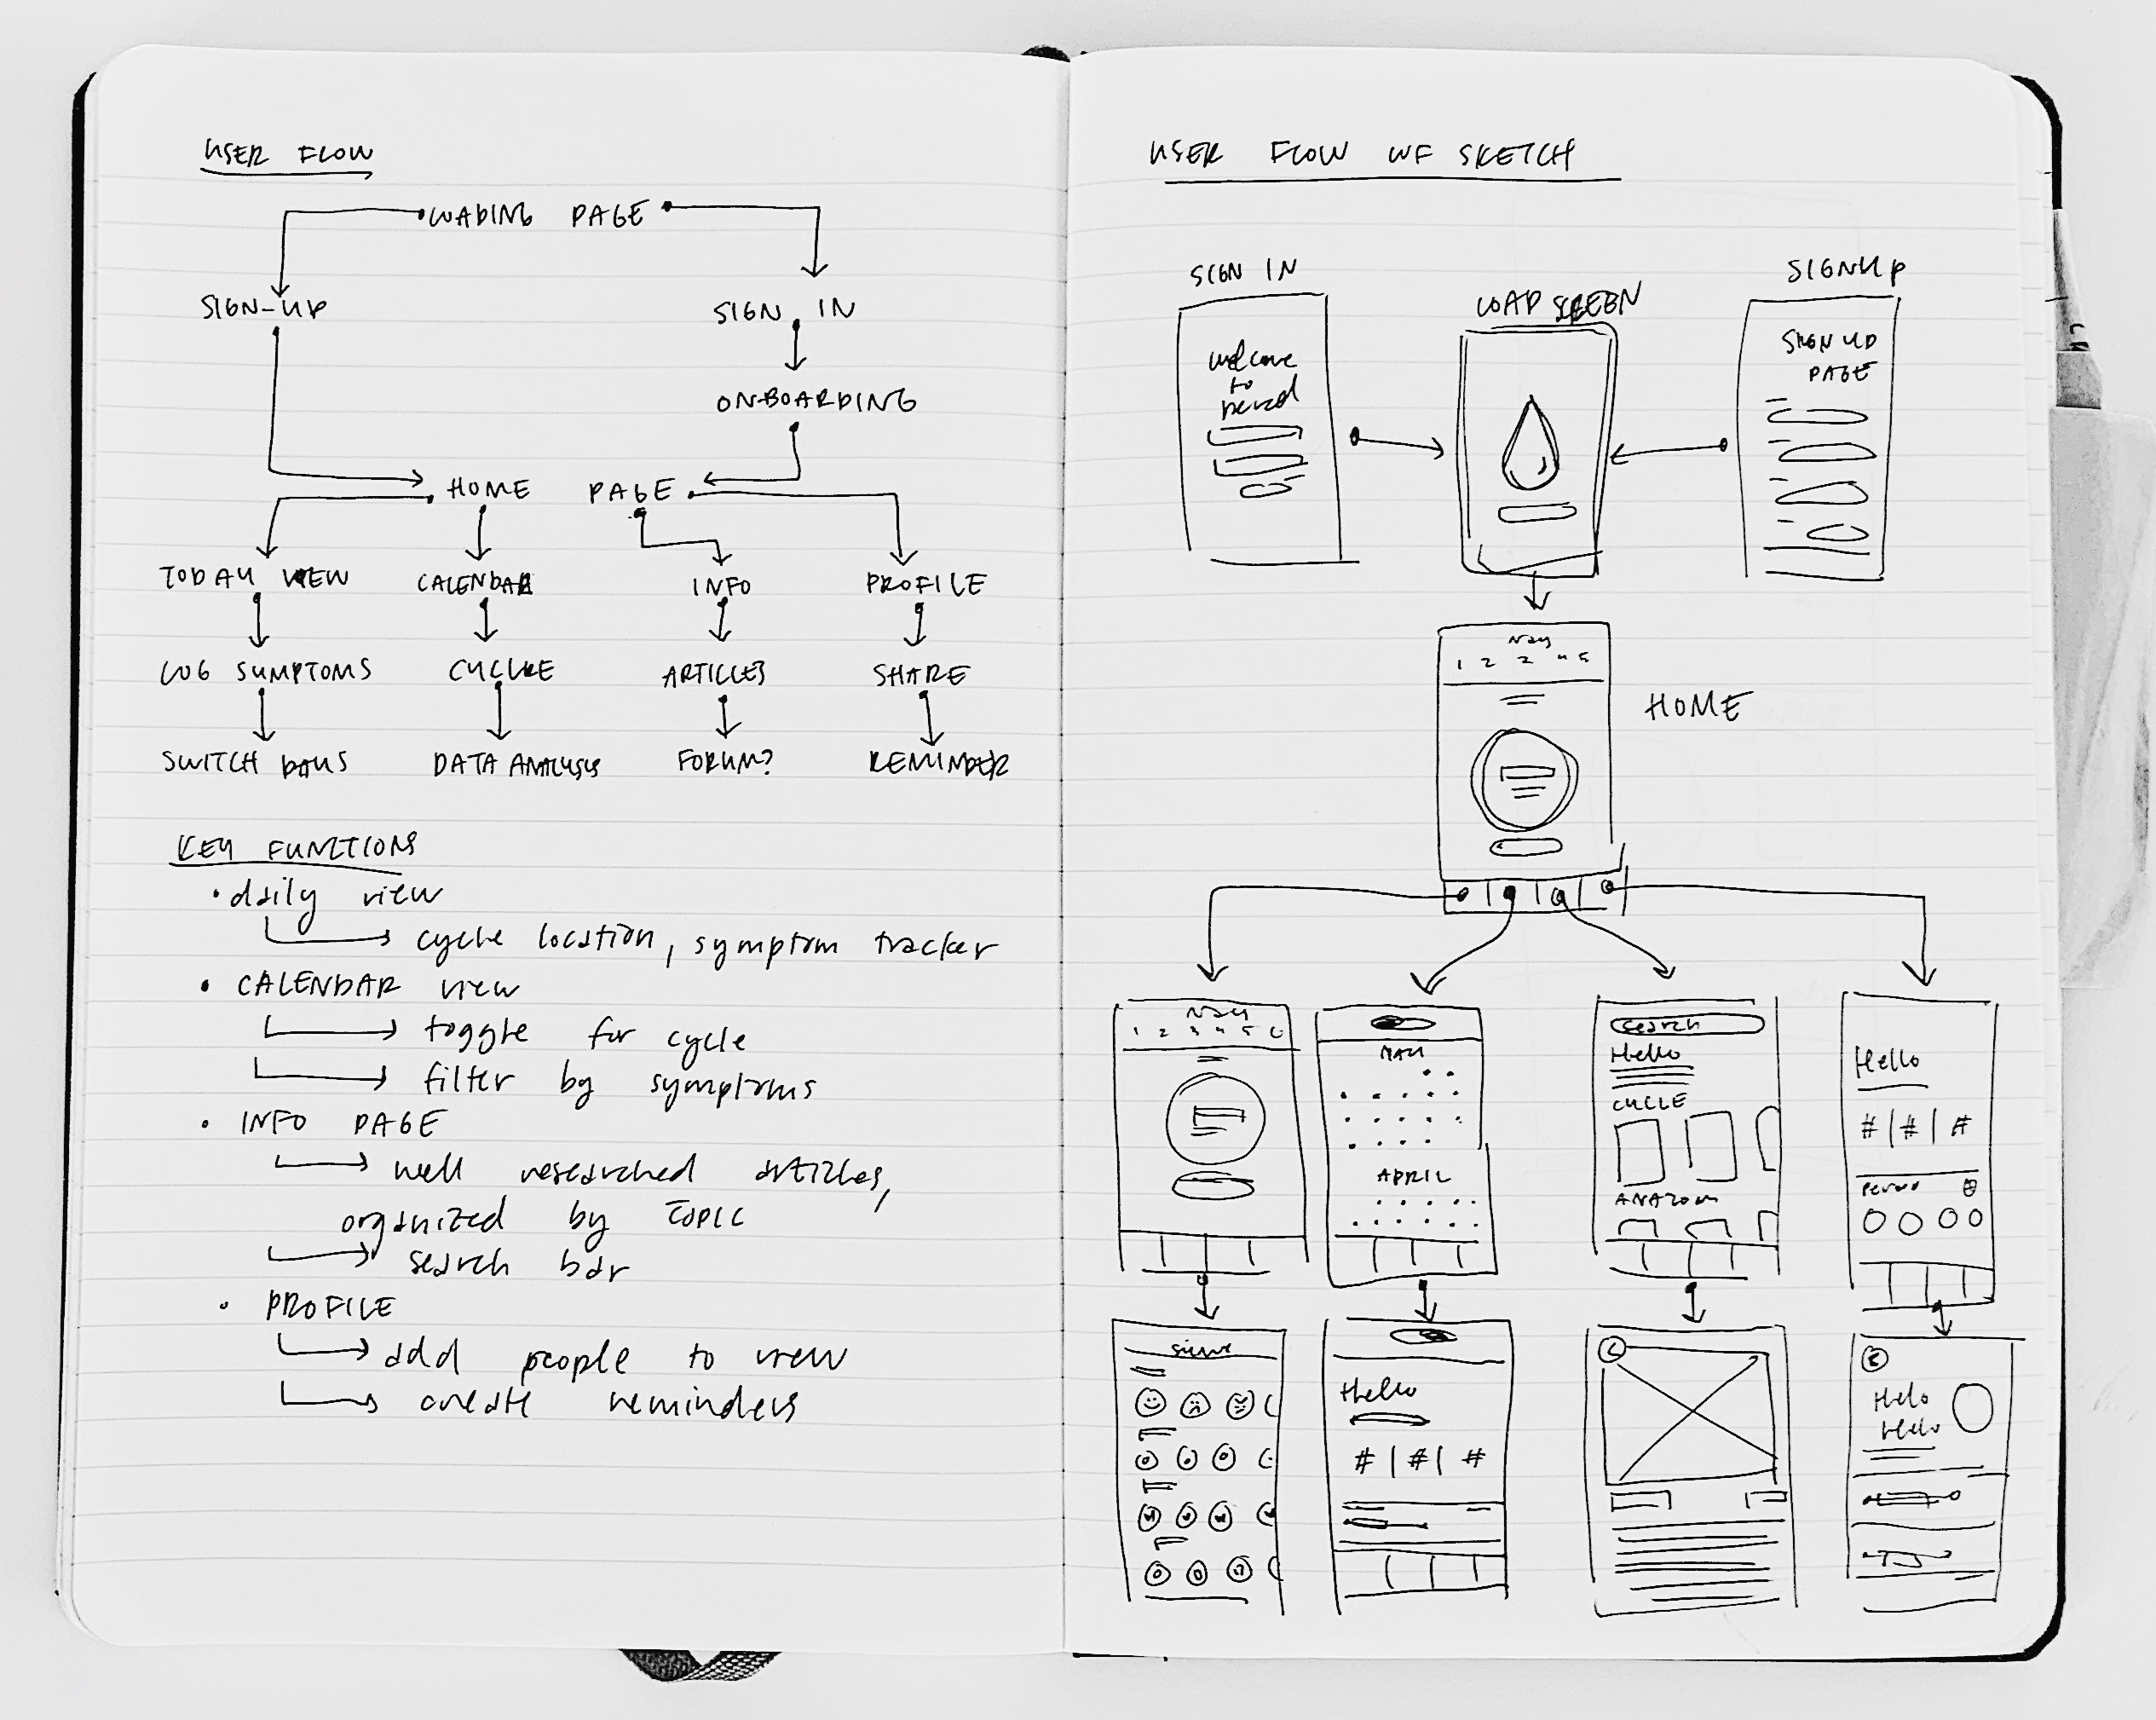 USER FLOW
LOADING PAGE
SIGN-UP SIGN IN
ONBOARDING
HOME PAGE
TODAY VIEW CALENDAR INFO PROFILE
LOG SYMPTOMS ARTICLES SHARE
SWITCH DAYS DATA ANALYSIS FORUM? REMINDER
KEY FUNCTIONS
• daily view
cycle location, symptom tracker
• CALENDAR view
toggle for cycle
filter by symptoms
• INFO PAGE
well researched articles,
organized by topic
search bar
• PROFILE
add people to view
create reminders
USER FLOW WF SKETCH
SIGN IN
LOAD SCREEN
SIGNUP
welcome
to
SIGN UP
PAGE
1 2 2 4 5
HOME
1 2 3 4 5 6
MAY
APRIL
search
Hello
CYCLE
Hello
# | # | #
Hello
# | # | #
Hello
Hello